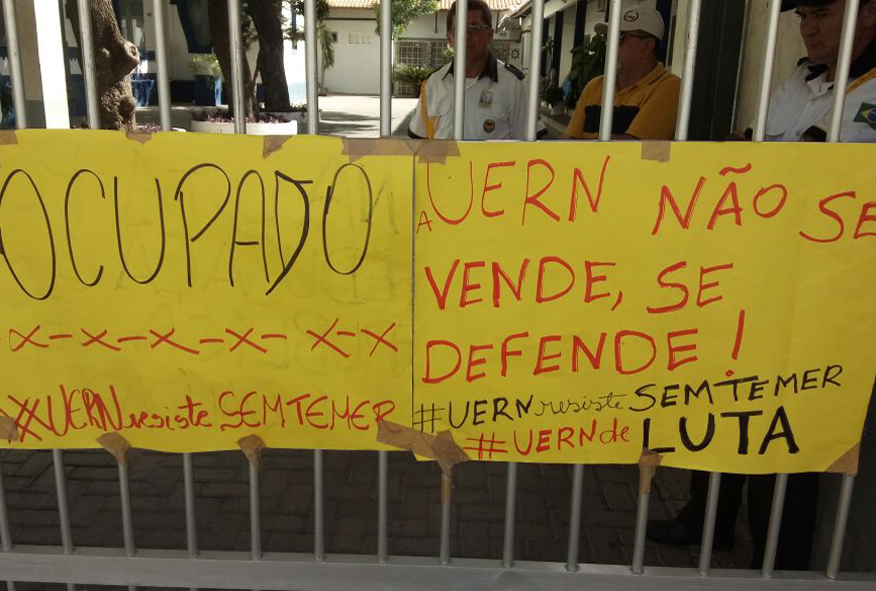 OCUPADO
x-x-x-x-x-x
#UERN resiste SEMTEMER
A UERN NÃO SE
VENDE, SE
DEFENDE!
#UERN resiste SEMTEMER
#UERN de LUTA